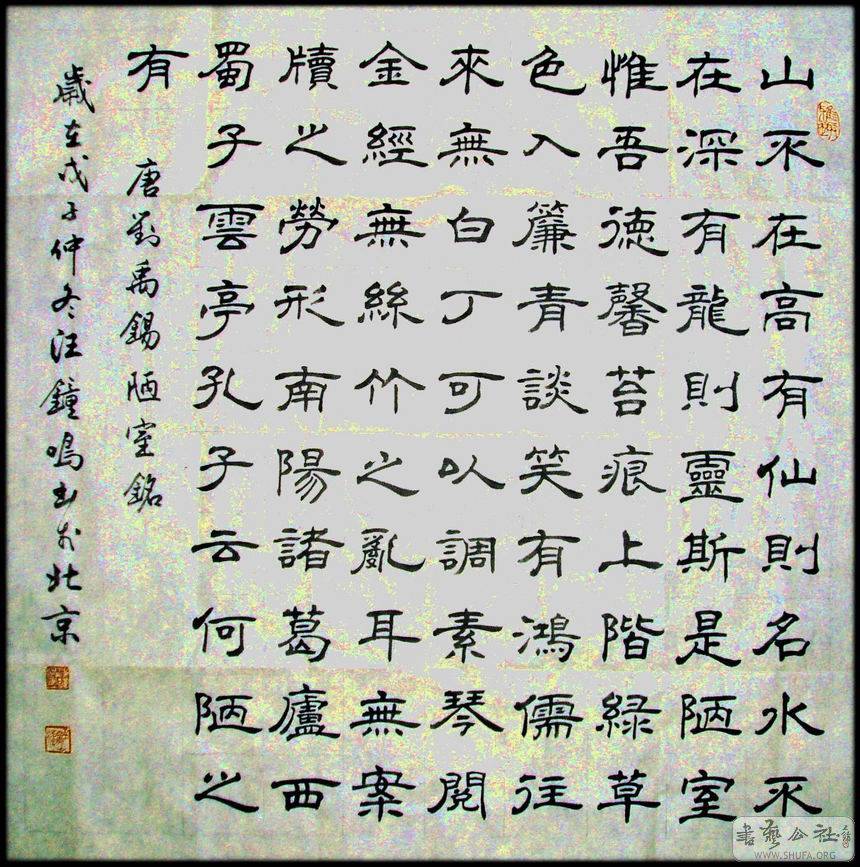 山不在高有仙則名水不
在深有龍則靈斯是陋室
惟吾德馨苔痕上階緑草
色入簾青談笑有鴻儒往
來無白丁可以調素琴閱
金經無絲竹之亂耳無案
牘之勞形南陽諸葛廬西
蜀子雲亭孔子云何陋之
有
唐劉禹錫陋室銘
歲在戊子仲冬汪鐘鳴書於北京
書藝公社
WWW.SHUFA.ORG